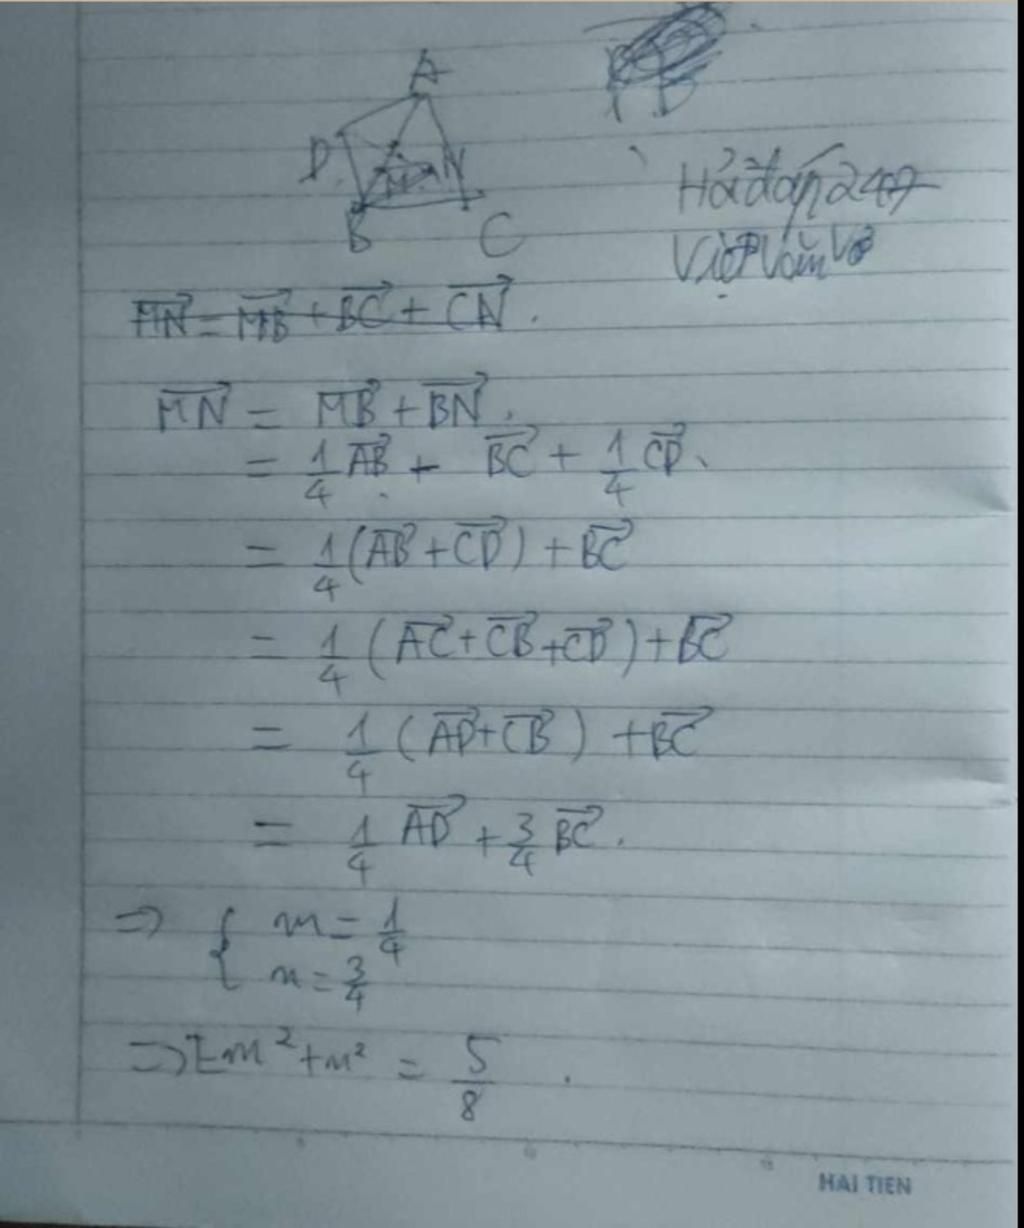 A
D
M
N
B
C
Hỏi đáp 247
Việt Văn Võ
MN = MB + BC + CN.
MN = MB + BN.
= 1/4 AB + BC + 1/4 CD.
= 1/4 (AB + CD) + BC
= 1/4 (AC + CB + CD) + BC
= 1/4 (AD + CB) + BC
= 1/4 AD + 3/4 BC.
⇒ { m = 1/4
n = 3/4
⇒ m² + n² = 5/8.
HAI TIEN